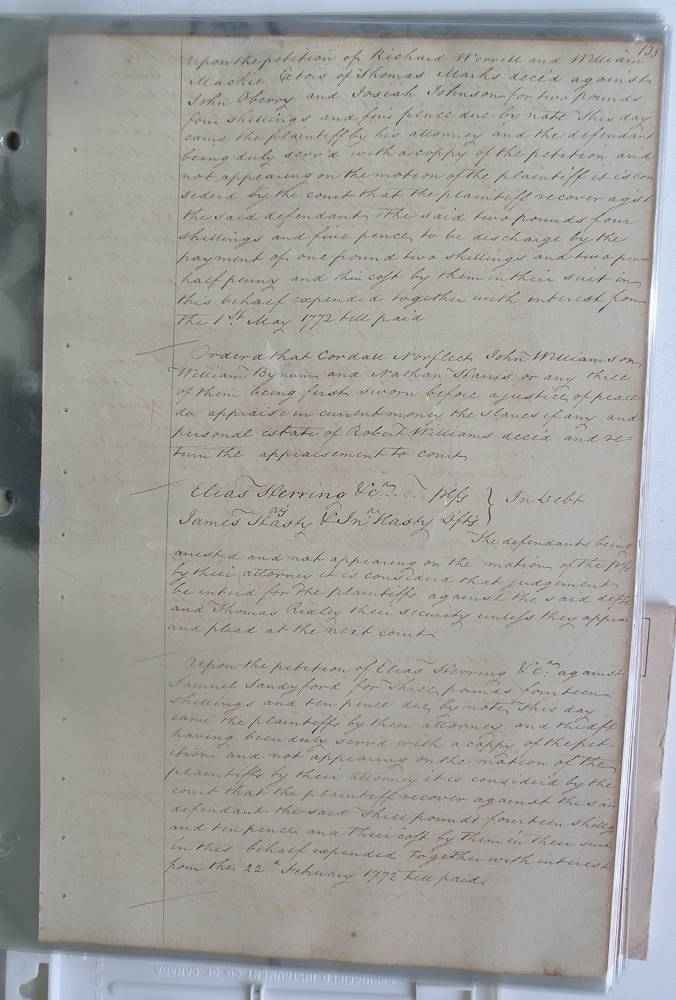 135
Upon the petition of Richard Worrell and William
Mackie Ectors of Thomas Marks decd against
John Oberry and Josiah Johnson for two pounds
four shillings and five pence due by note This day
came the plaintiff by his attorney and the defendant
being duly serv'd with a coppy of the petition and
not appearing on the motion of the plaintiff it is con
siderd by the court that the plaintiff recover agst
the said defendant the said two pounds four
shillings and five pence to be discharge by the
payment of one pound two shillings and two pence
half penny and their cost by them in their suit in
this behalf expended together with interest from
the 1st May 1772 till paid
Orderd that Cordall Norflect John Williamson
William Bynum and Nathan or any three
of them being first sworn before a justice of peace
do appraise in current money the slaves if any and
personal estate of Robert Williams decd and re=
turn the appraisement to court
Elias Herring &Ca plfs } In Debt
James Hasty & Jno Hasty Dfts
The defendants being
arrested and not appearing on the motion of the plfs
by their attorney it is considerd that judgement
be enterd for the plaintiffs against the said defts
and Thomas Ridley their security unless they appear
and plead at the next court
Upon the petition of Elias Herring &Ca against
Samuel Sandyford for three pounds fourteen
shillings and ten pence due by note This day
came the plaintiffs by their attorney and the dft
having been duly serv'd with a coppy of the pet=
ition and not appearing on the motion of the
plaintiffs by their attorney it is considerd by the
court that the plaintiff recover against the said
defendant the said three pounds fourteen shillgs
and ten pence and their cost by them in their suit
in this behalf expended together with interest
from the 22d February 1772 till paid